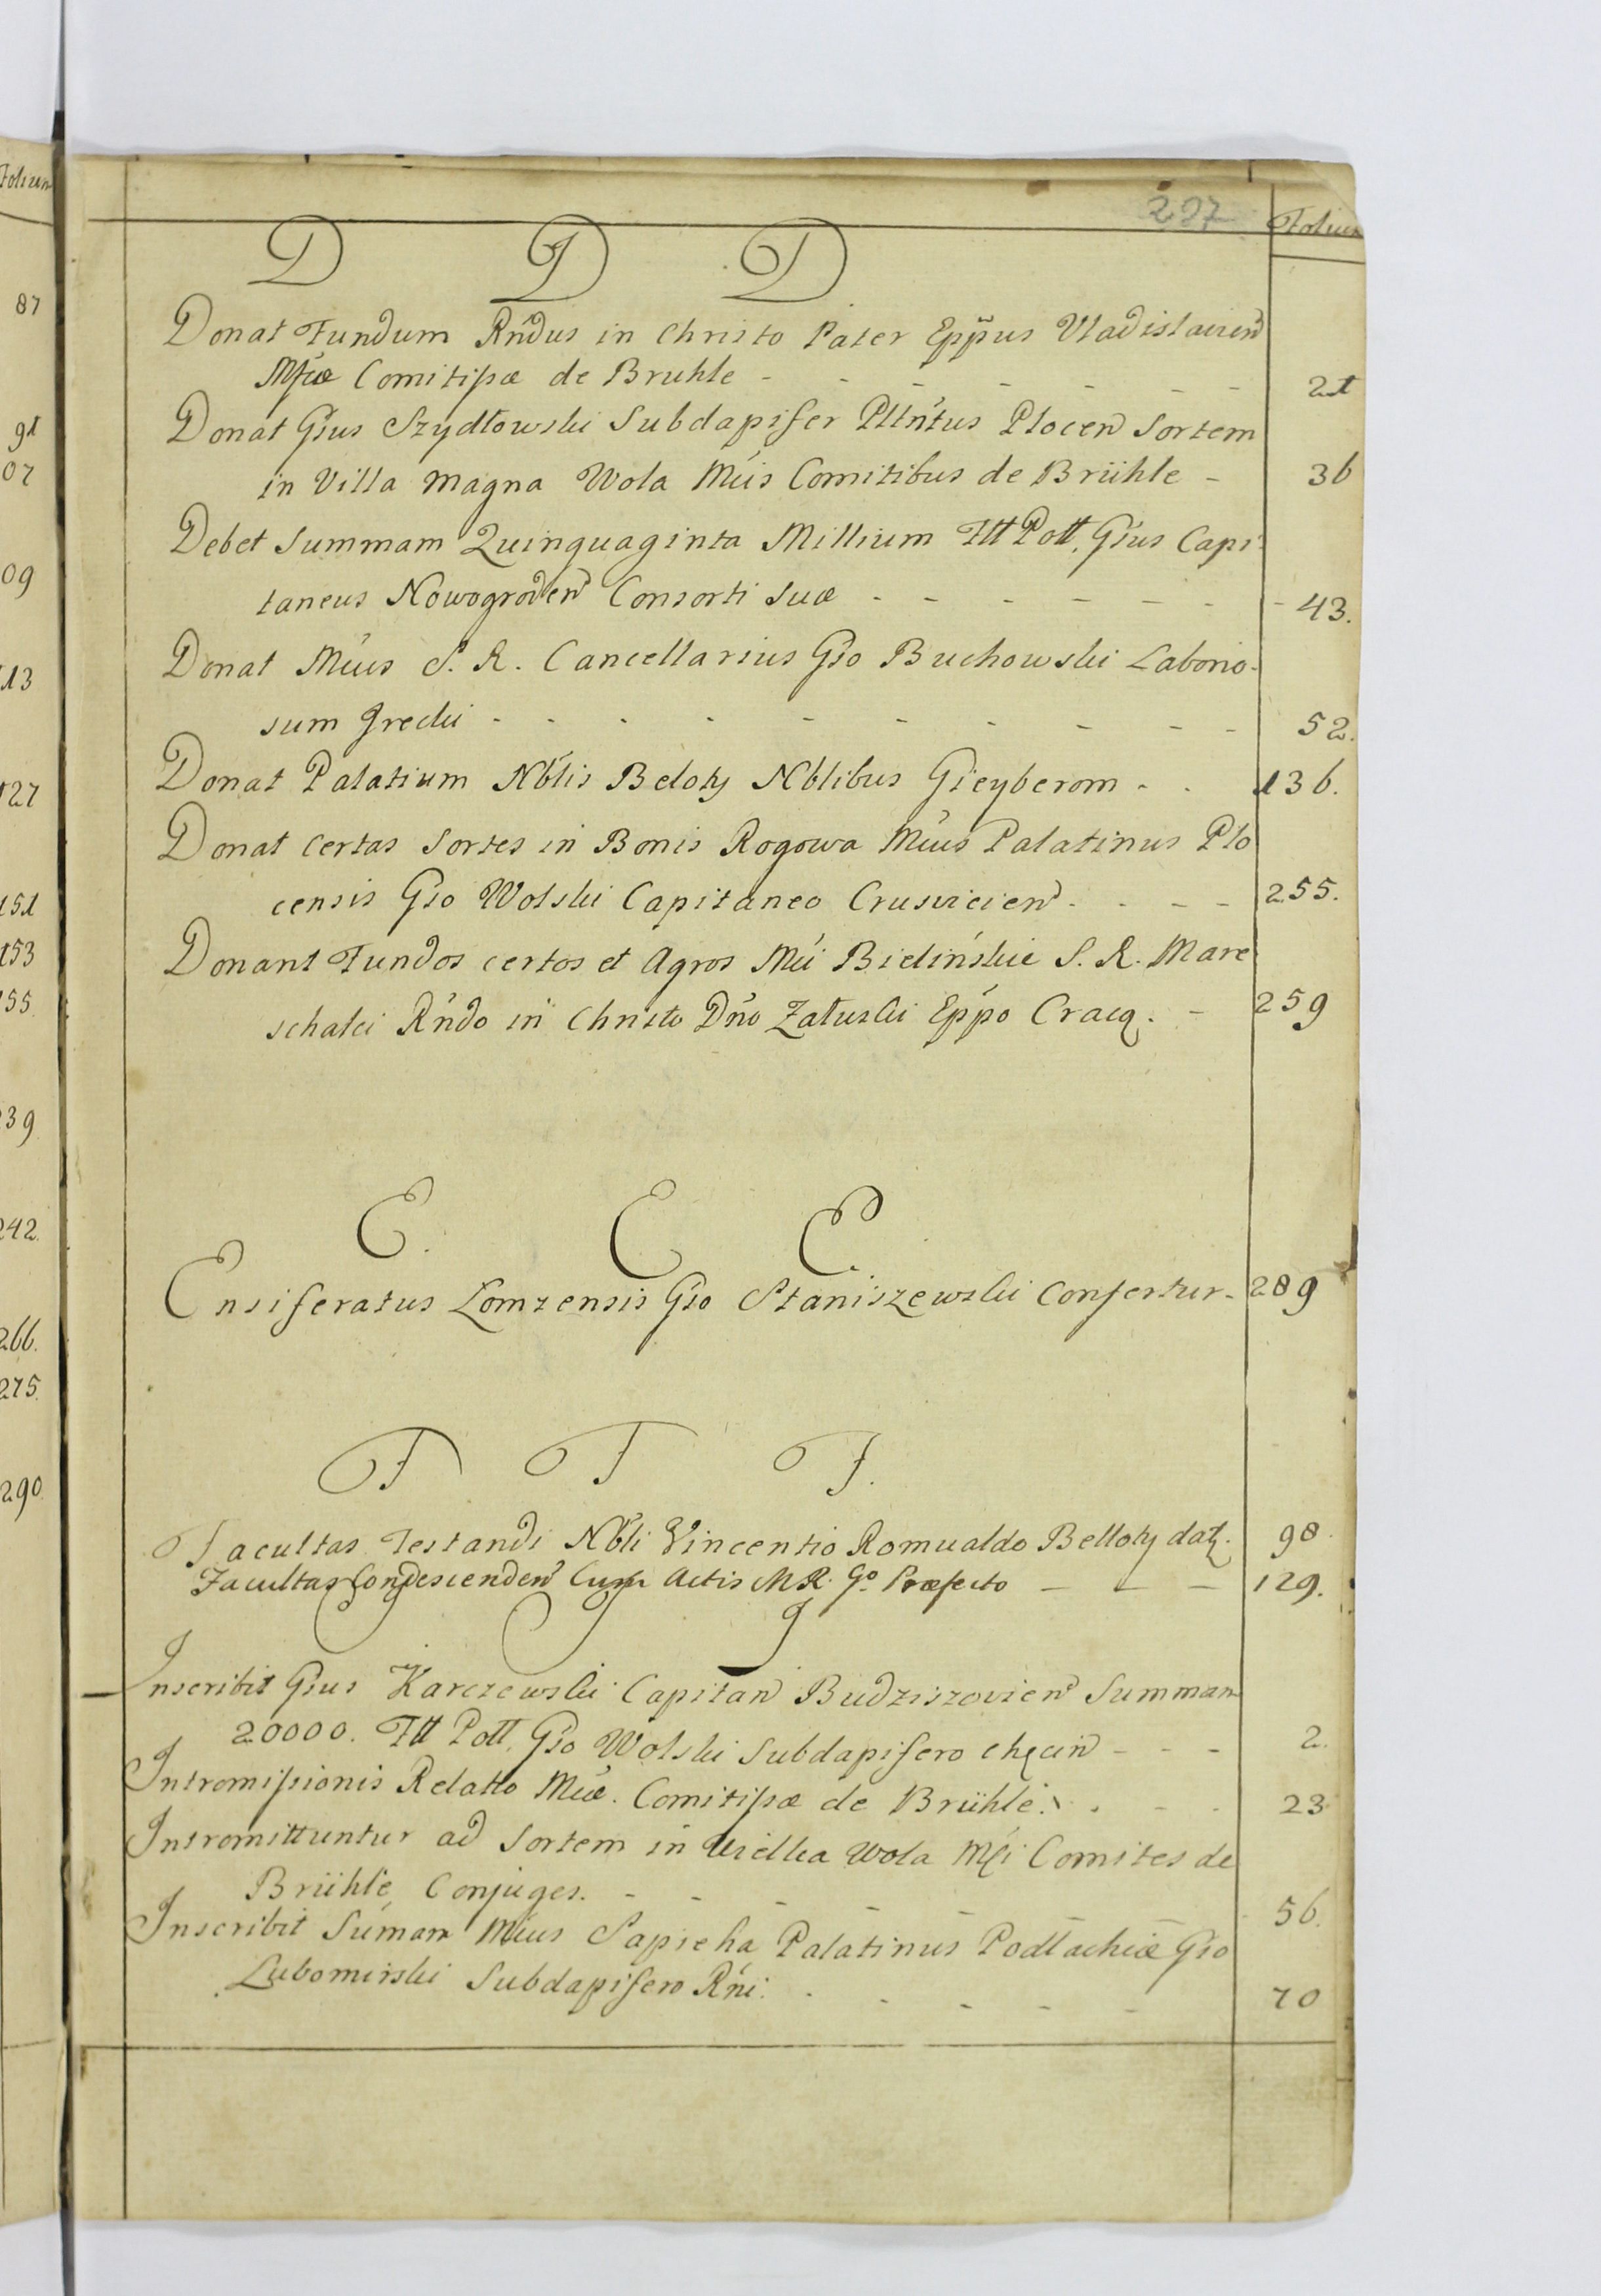 Folium
87
91
07
09
113
127
151
153
155
239
242.
266.
275.
290.
297
Folium
D D D
Donat Fundum Rńdus in Christo Pater Epp̃us Vladislavien
Mfice Comitißæ de Bruhle - - - - - - - 21
Donat Gsus Szydłowski Subdapifer Pltńtus Plocen Sortem
in Villa Magna Wola Mcis Comitibus de Brühle - 36
Debet Summam Quinquaginta Millium Ftt Pott. Gsus Capi
taneus Nowogroden Consorti Suæ - - - - - - - 43.
Donat Mcus S. R. Cancellarius Gso Buchowski Laborio-
sum Grecki - - - - - - - - - - 52.
Donat Palatium Nblis Beloty Nblibus Gieyberom - - 136.
Donat certas Sortes in Bonis Rogowa Mcus Palatinus Plo
censis Gso Wolski Capitaneo Crusvicien - - - - 255.
Donant Fundos certos et Agros Mci Bielińskie S. R. Mare
schalci Rńdo in Christo Dńo Załuski Eppo Cracq. - 259
E. E E.
Ensiferatus Lomzensis Gso Staniszewski Confertur - 289
F F F.
Facultas Testandi Nbli Vincentio Romualdo Belloty datq. 98.
Facultas Condescenden Cum Actis M R. Go. Præfecto - - - 129.
J J J
Inscribit Gsus Karczewski Capitan Budziszovien Summam
20000. Ftt Pott. Gso Wolski Subdapifero Chęcin - - - 2.
Intromißionis Relatio Mcæ. Comitißæ de Brühle. - - - 23
Intromittuntur ad Sortem in Wielka Wola Mci Comites de
Brühle Conjuges. - - - - - - - 56.
Inscribit Sumam Mcus Sapieha Palatinus Podlachiæ Gso
Lubomirski Subdapifero Rńi. - - - - - 70